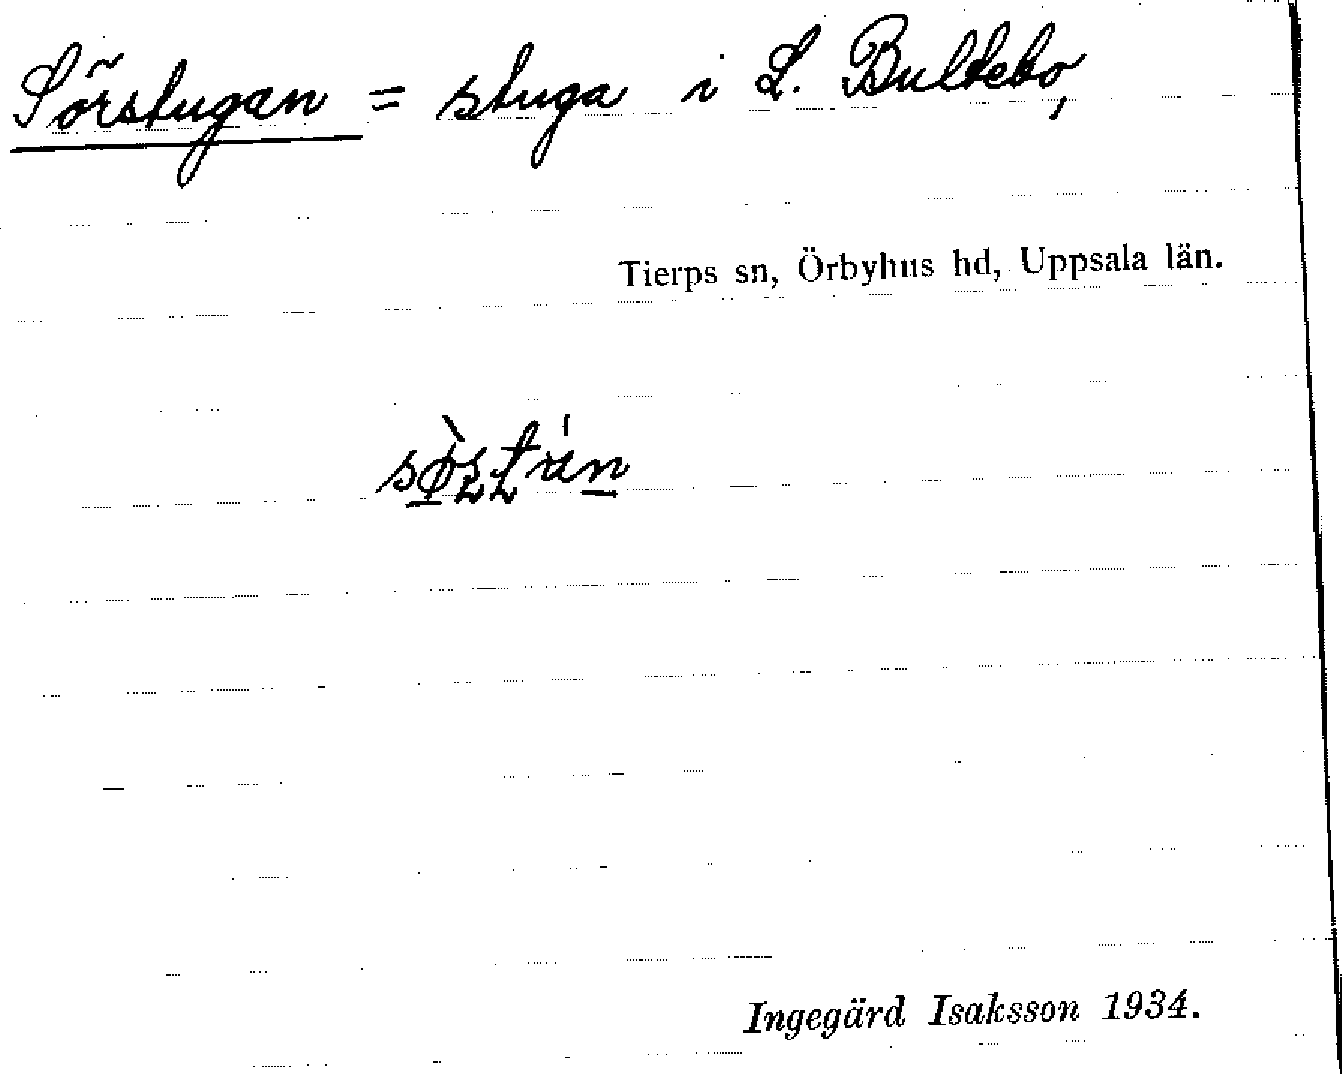 Sörstugan = stuga i L. Bultebo,
Tierps sn, Örbyhus hd, Uppsala län.
Ingegärd Isaksson 1934.